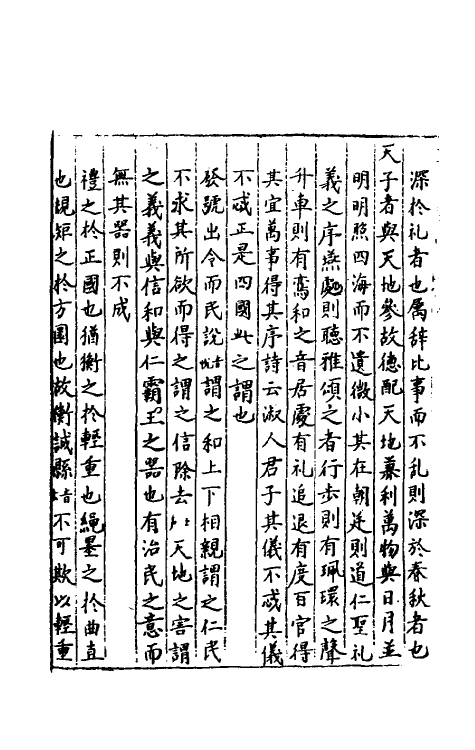 深於礼者也属辞比事而不乱則深於春秋者也
天子者與天地參故德配天地兼利萬物與日月並
明明照四海而不遺微小其在朝廷則道仁聖礼
義之序燕處則聽雅頌之者行步則有珮環之聲
升車則有鸞和之音居處有礼追退有度百官得
其宜萬事得其序詩云淑人君子其儀不忒其儀
不忒正是四國此之謂也
發號出令而民說音悅謂之和上下相親謂之仁民
不求其所欲而得之謂之信除去天地之害謂
之義義與信和與仁霸王之器也有治民之意而
無其器則不成
禮之於正國也猶衡之於輕重也繩墨之於曲直
也規矩之於方圓也故衡誠縣音不可欺以輕重